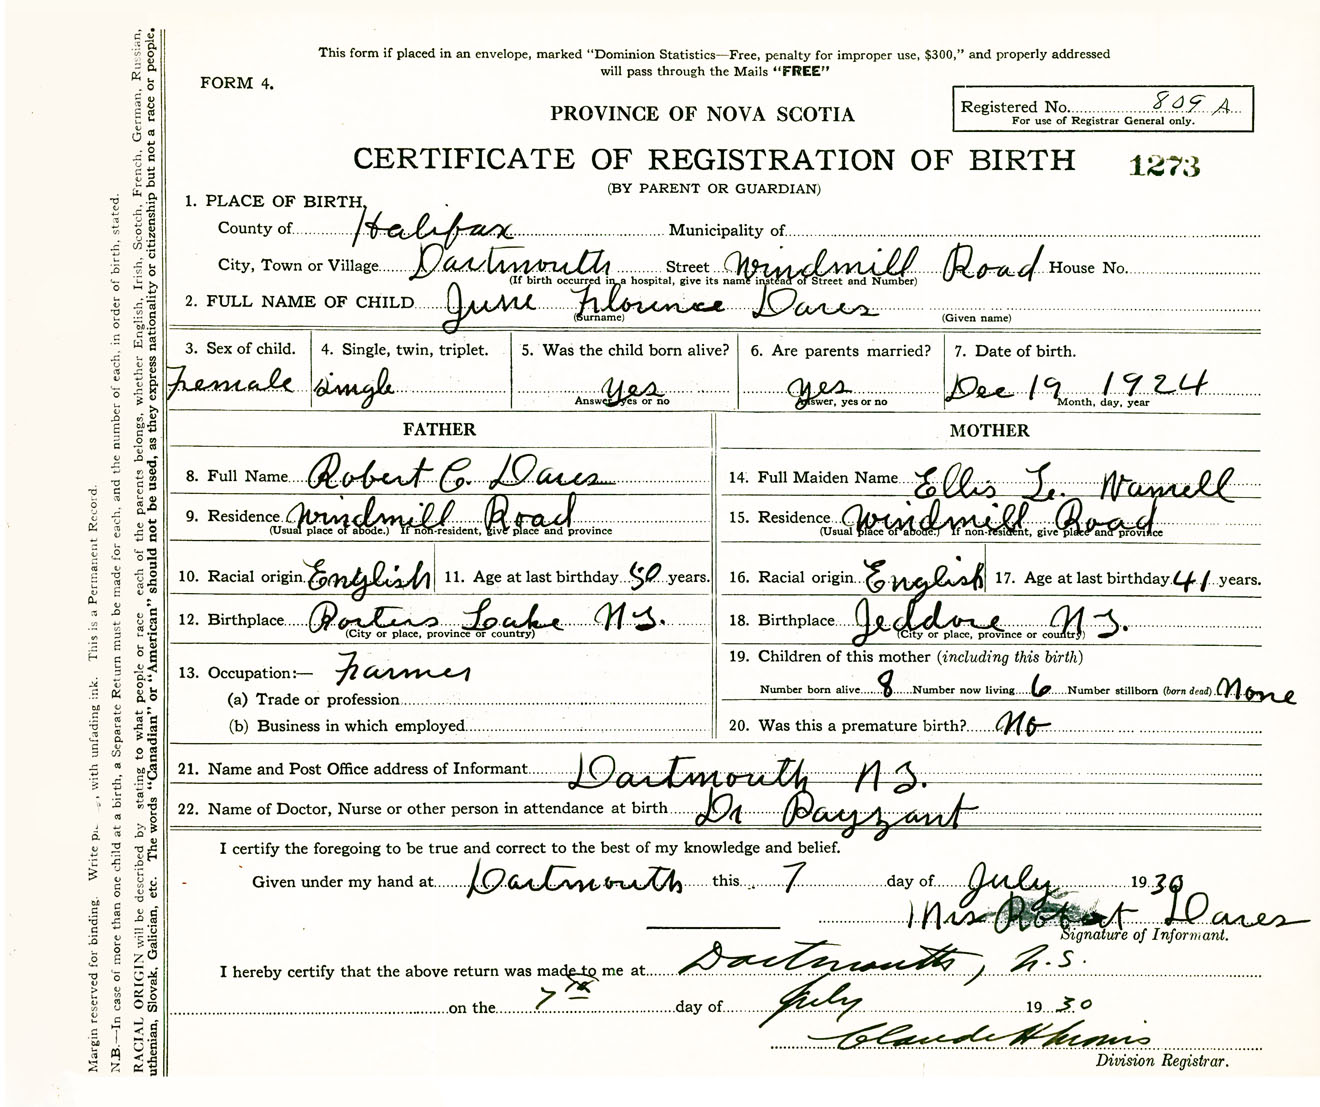 This form if placed in an envelope, marked "Dominion Statistics—Free, penalty for improper use, $300," and properly addressed
will pass through the Mails "FREE"
FORM 4.
Registered No. 809 A
For use of Registrar General only.
PROVINCE OF NOVA SCOTIA
CERTIFICATE OF REGISTRATION OF BIRTH 1273
(BY PARENT OR GUARDIAN)
1. PLACE OF BIRTH,
County of Halifax Municipality of
City, Town or Village Dartmouth Street Windmill Road House No.
(If birth occurred in a hospital, give its name instead of Street and Number)
2. FULL NAME OF CHILD June Florence Dares
(Surname) (Given name)
3. Sex of child. 4. Single, twin, triplet. 5. Was the child born alive? 6. Are parents married? 7. Date of birth.
Female Single Yes Yes Dec 19 1924
Answer, yes or no Answer, yes or no Month, day, year
FATHER MOTHER
8. Full Name Robert C. Dares 14. Full Maiden Name Ellis L.
9. Residence Windmill Road 15. Residence Windmill Road
(Usual place of abode.) If non-resident, give place and province (Usual place of abode.) If non-resident, give place and province
10. Racial origin English 11. Age at last birthday 50 years. 16. Racial origin English 17. Age at last birthday 41 years.
12. Birthplace Porters Lake N.S. 18. Birthplace Jeddore N.S.
(City or place, province or country) (City or place, province or country)
13. Occupation:— Farmer 19. Children of this mother (including this birth)
(a) Trade or profession Number born alive 8 Number now living 6 Number stillborn (born dead) None
(b) Business in which employed 20. Was this a premature birth? No
21. Name and Post Office address of Informant Dartmouth N.S.
22. Name of Doctor, Nurse or other person in attendance at birth Dr Payzant
I certify the foregoing to be true and correct to the best of my knowledge and belief.
Given under my hand at Dartmouth this 7 day of July 1930
Mrs Robert Dares
Signature of Informant.
I hereby certify that the above return was made to me at Dartmouth, N.S.
on the 7th day of July 1930
Claude H
Division Registrar.
Margin reserved for binding. Write with unfading ink. This is a Permanent Record.
N.B.—In case of more than one child at a birth, a Separate Return must be made for each, and the number of each, in order of birth, stated.
RACIAL ORIGIN will be described by stating to what people or race each of the parents belongs, whether English, Irish, Scotch, French, German, Russian,
uthenian, Slovak, Galician, etc. The words "Canadian" or "American" should not be used, as they express nationality or citizenship but not a race or people.